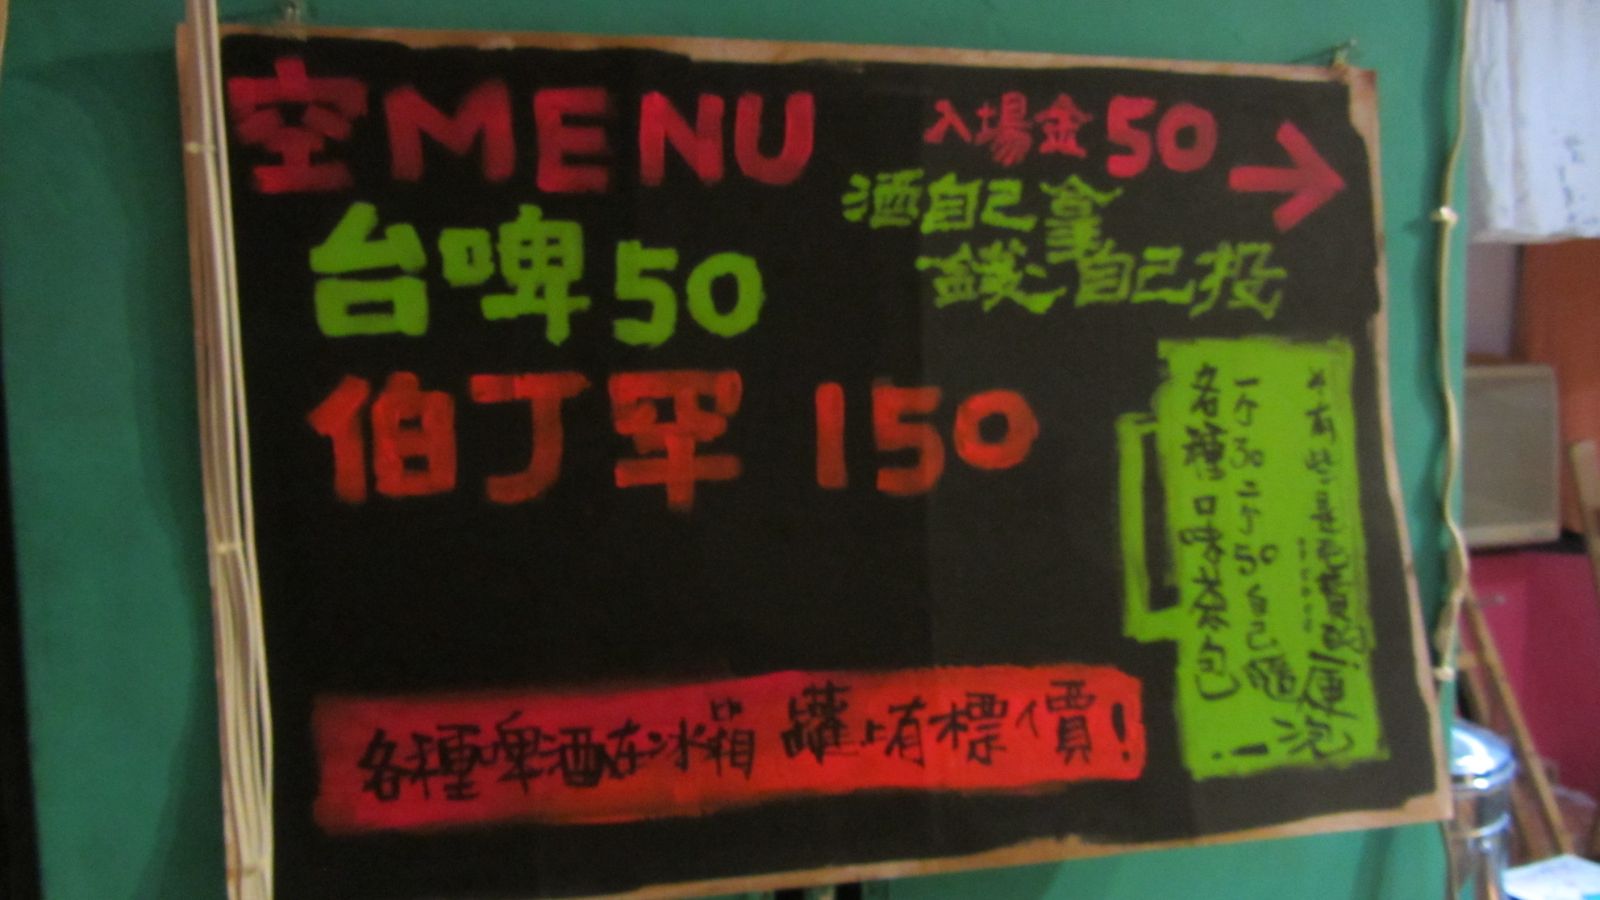 空MENU
入場金50
酒自己拿
錢自己投
台啤50
伯丁罕 150
各種口味茶包
一ㄗ30二ㄗ50自己隨
便
一泡
各種啤酒在冰箱 罐上有標價!